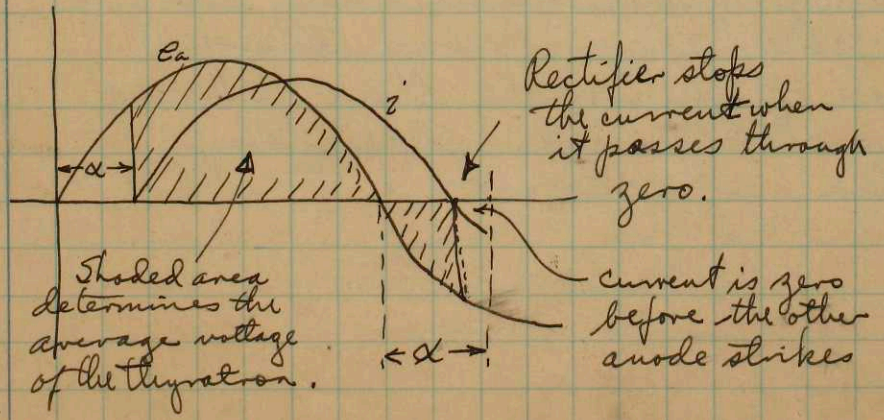 ea
i
α
Rectifier stops
the current when
it passes through
zero.
Shaded area
determines the
average voltage
of the thyratron.
α
current is zero
before the other
anode strikes